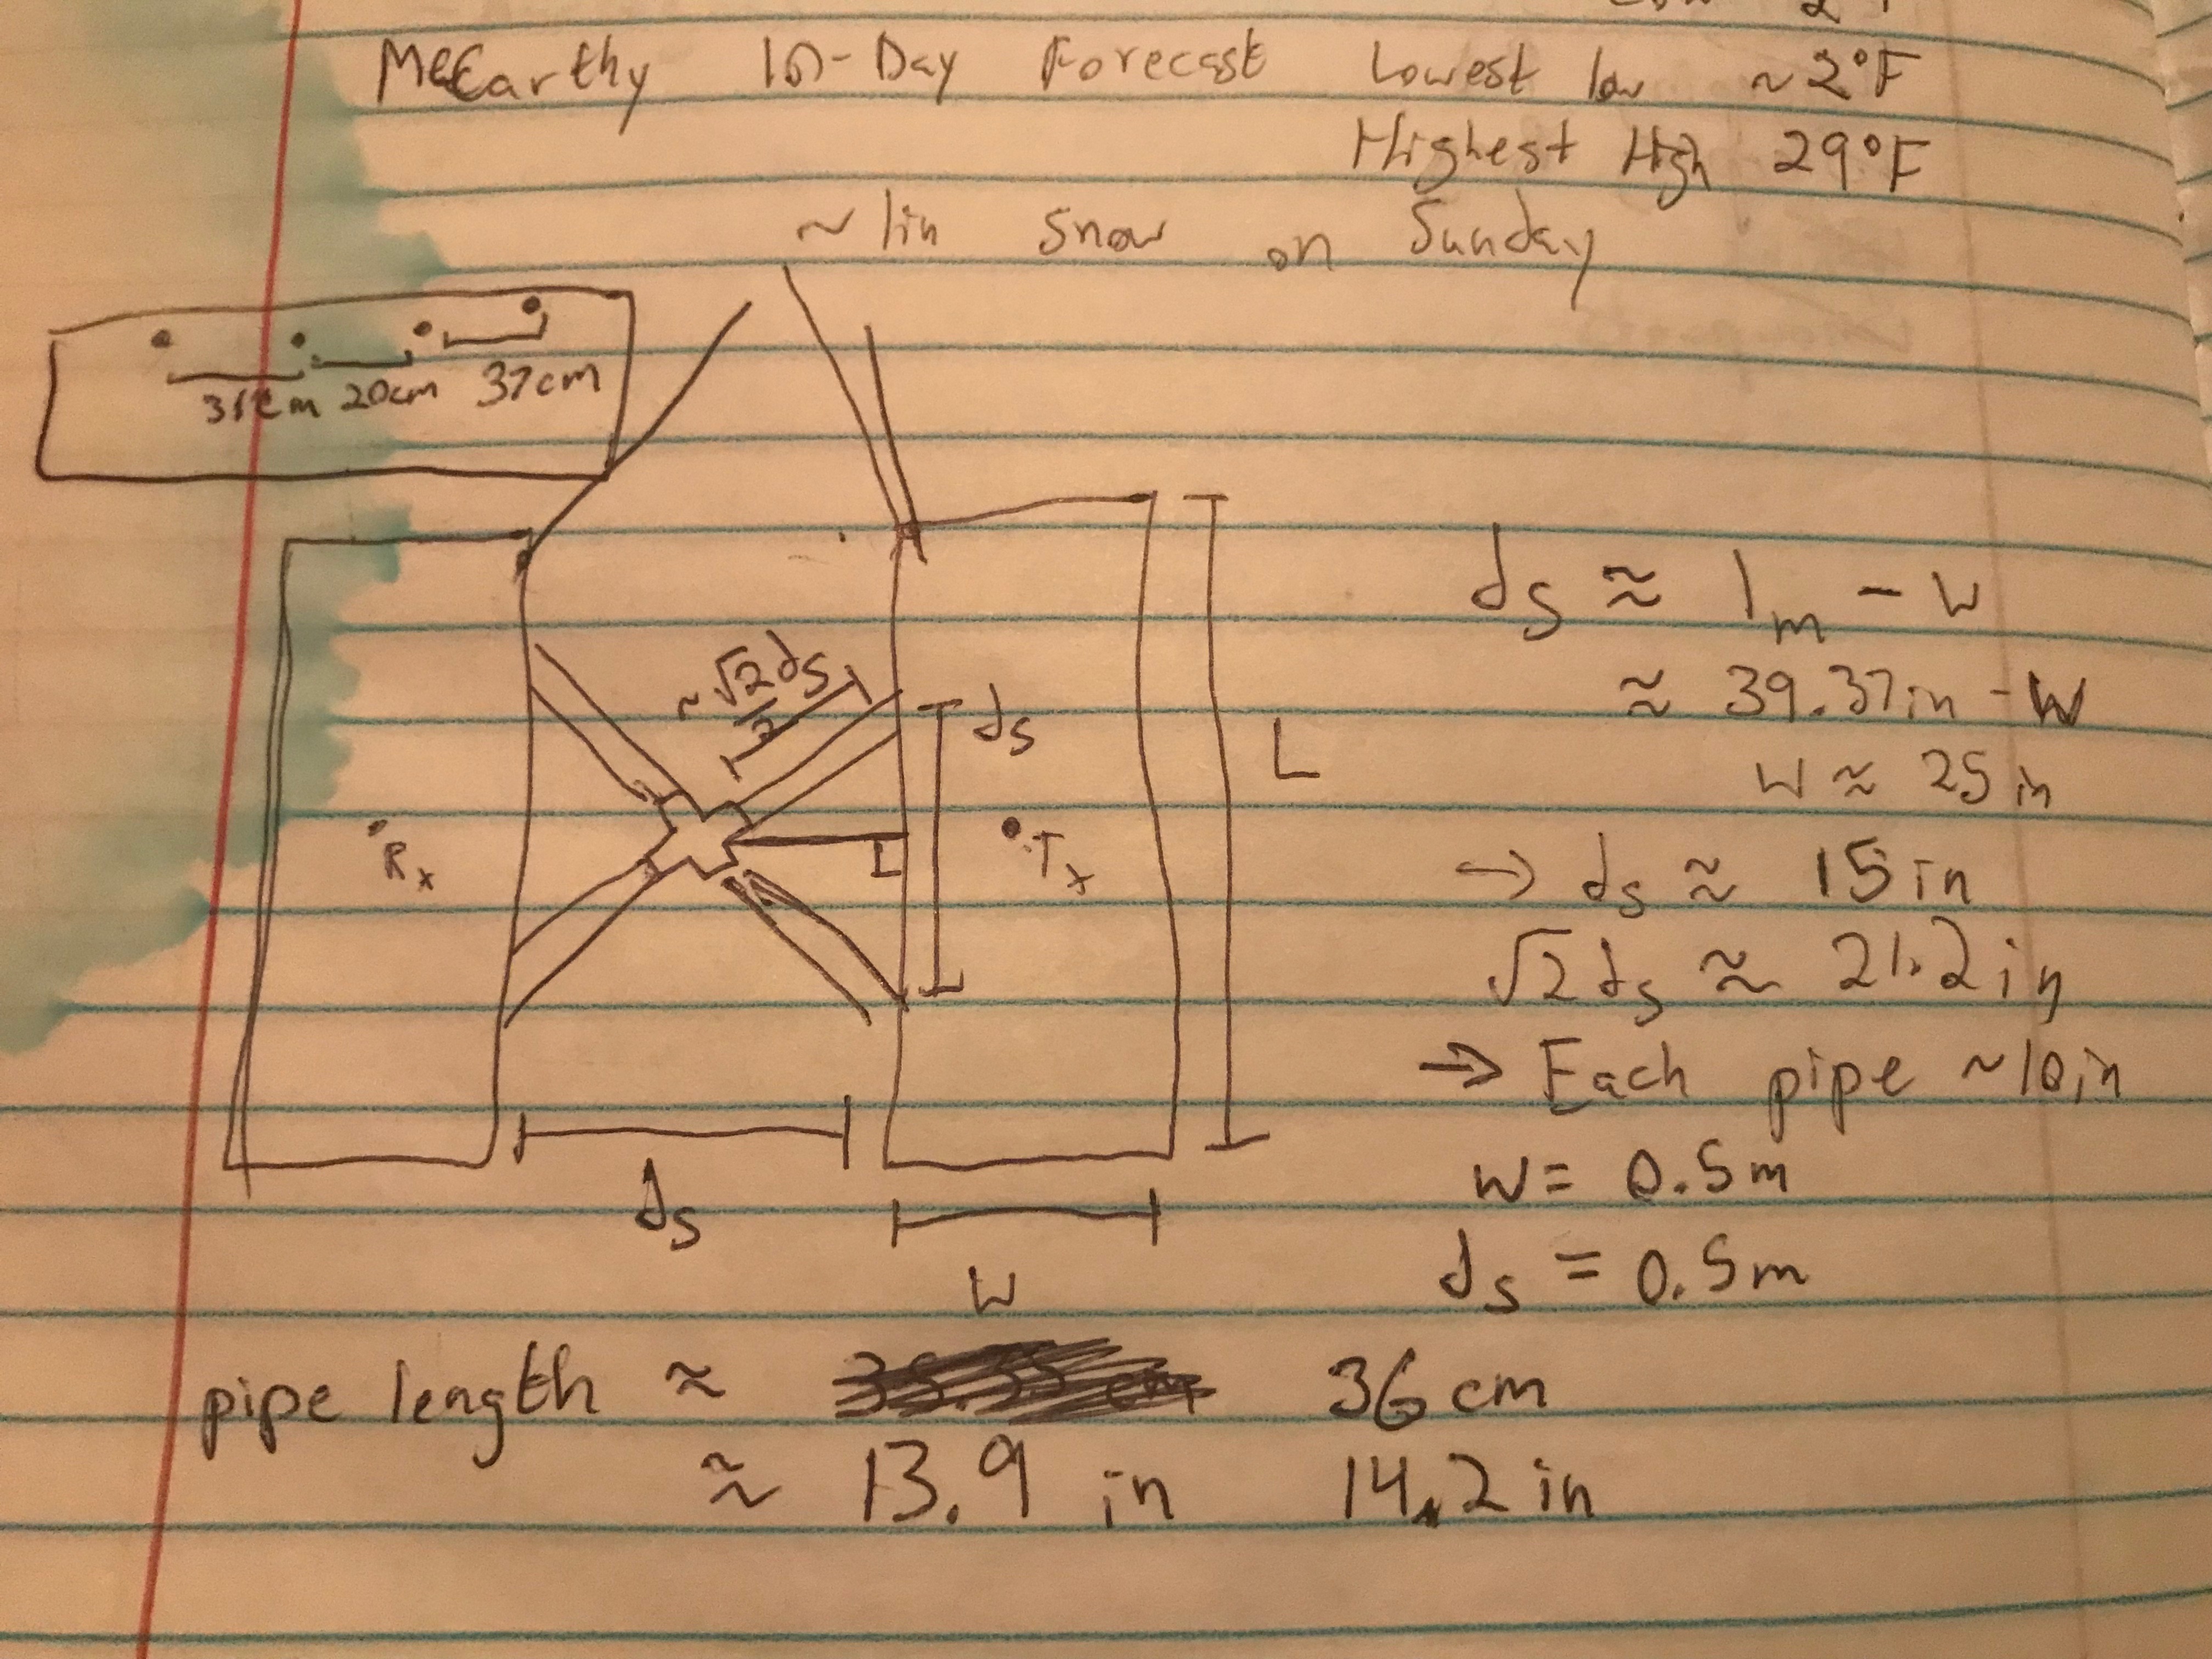 McCarthy 10-Day Forecast Lowest low ~2°F
Highest High 29°F
~1in snow on Sunday
20cm 37cm
~√2ds/2
ds
L
Rx
Tx
I
ds
W
ds ≈ 1m - W
≈ 39.37in - W
W ≈ 25in
→ ds ≈ 15in
√2ds ≈ 21.2in
→ Each pipe ~10in
W = 0.5m
ds = 0.5m
pipe length ≈ 36cm
≈ 13.9 in 14.2in